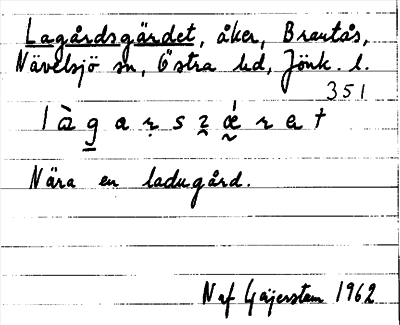 Lagårdsgärdet, åker, Brautås,
Nävelsjö sn, Östra hd, Jönk. l.
351
Nära en ladugård.
N af Geijerstam 1962